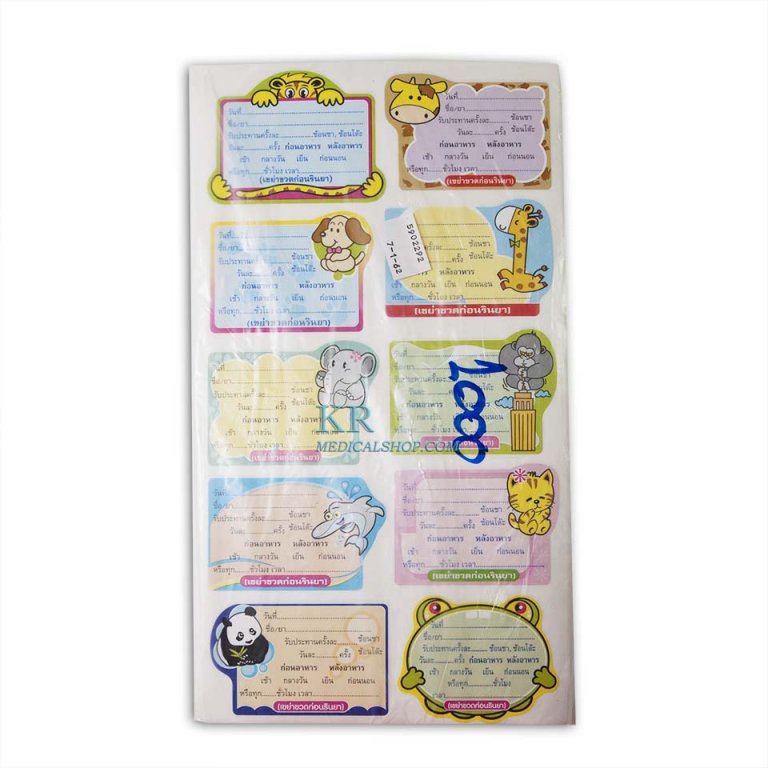 วันที่
ชื่อ/ยา
รับประทานครั้งละ ช้อนชา, ช้อนโต๊ะ
วันละ ครั้ง ก่อนอาหาร หลังอาหาร
เช้า กลางวัน เย็น ก่อนนอน
หรือทุก ชั่วโมง เวลา
(เขย่าขวดก่อนรินยา)
วันที่
ชื่อ/ยา
รับประทานครั้งละ ช้อนชา
วันละ ครั้ง ช้อนโต๊ะ
ก่อนอาหาร หลังอาหาร
เช้า กลางวัน เย็น ก่อนนอน
หรือทุก ชั่วโมง เวลา
(เขย่าขวดก่อนรินยา)
วันที่
ชื่อ/ยา
รับประทานครั้งละ ช้อนชา
วันละ ครั้ง ช้อนโต๊ะ
ก่อนอาหาร หลังอาหาร
เช้า กลางวัน เย็น ก่อนนอน
หรือทุก ชั่วโมง เวลา
(เขย่าขวดก่อนรินยา)
5902292
7-1-62
ช้อนชา
ครั้ง ช้อนโต๊ะ
หลังอาหาร
เช้า กลางวัน เย็น ก่อนนอน
หรือทุก ชั่วโมง เวลา
(เขย่าขวดก่อนรินยา)
วันที่
ชื่อ/ยา
รับประทานครั้งละ ช้อนชา
วันละ ครั้ง ช้อนโต๊ะ
ก่อนอาหาร หลังอาหาร
เช้า กลางวัน เย็น ก่อนนอน
หรือทุก ชั่วโมง เวลา
(เขย่าขวดก่อนรินยา)
วันที่
ชื่อ/ยา
รับประทานครั้งละ
วันละ
ก่อนอาหาร
เช้า กลางวัน ก่อนนอน
หรือทุก ชั่วโมง
1000
KR
MEDICALSHOP.COM
วันที่
ชื่อ/ยา
รับประทานครั้งละ ช้อนชา
วันละ ครั้ง ช้อนโต๊ะ
ก่อนอาหาร หลังอาหาร
เช้า กลางวัน เย็น ก่อนนอน
หรือทุก ชั่วโมง เวลา
(เขย่าขวดก่อนรินยา)
วันที่
ชื่อ/ยา
รับประทานครั้งละ ช้อนชา
วันละ ครั้ง ช้อนโต๊ะ
ก่อนอาหาร หลังอาหาร
เช้า กลางวัน เย็น ก่อนนอน
หรือทุก ชั่วโมง เวลา
(เขย่าขวดก่อนรินยา)
วันที่
ชื่อ/ยา
รับประทานครั้งละ ช้อนชา
วันละ ครั้ง ช้อนโต๊ะ
ก่อนอาหาร หลังอาหาร
เช้า กลางวัน เย็น ก่อนนอน
หรือทุก ชั่วโมง เวลา
(เขย่าขวดก่อนรินยา)
วันที่
ชื่อ/ยา
รับประทานครั้งละ ช้อนชา, ช้อนโต๊ะ
วันละ ครั้ง ก่อนอาหาร หลังอาหาร
เช้า กลางวัน เย็น ก่อนนอน
หรือทุก ชั่วโมง
เวลา
(เขย่าขวดก่อนรินยา)